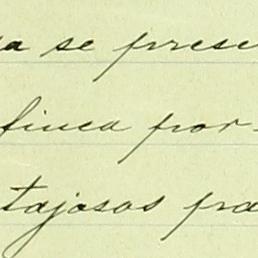 a se prese
finca por-
tajosos pa